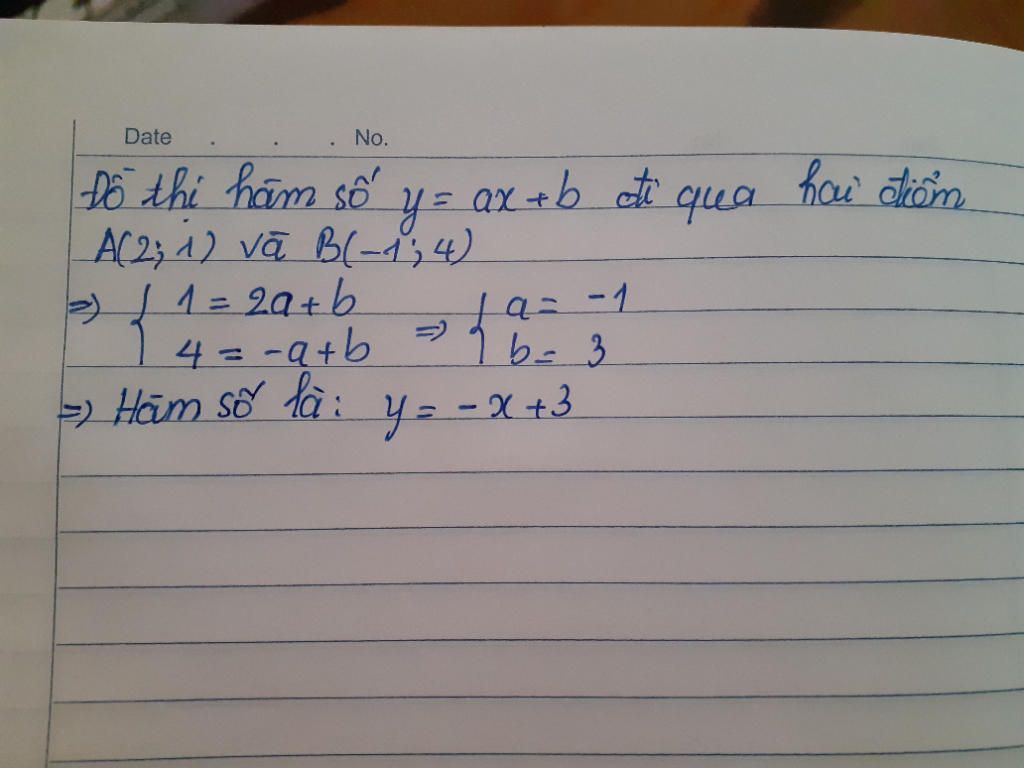 Date . . . No.
Đồ thị hàm số y = ax + b đi qua hai điểm
A(2; 1) và B(-1; 4)
=> { 1 = 2a + b => { a = -1
4 = -a + b b = 3
=> Hàm số là: y = -x + 3